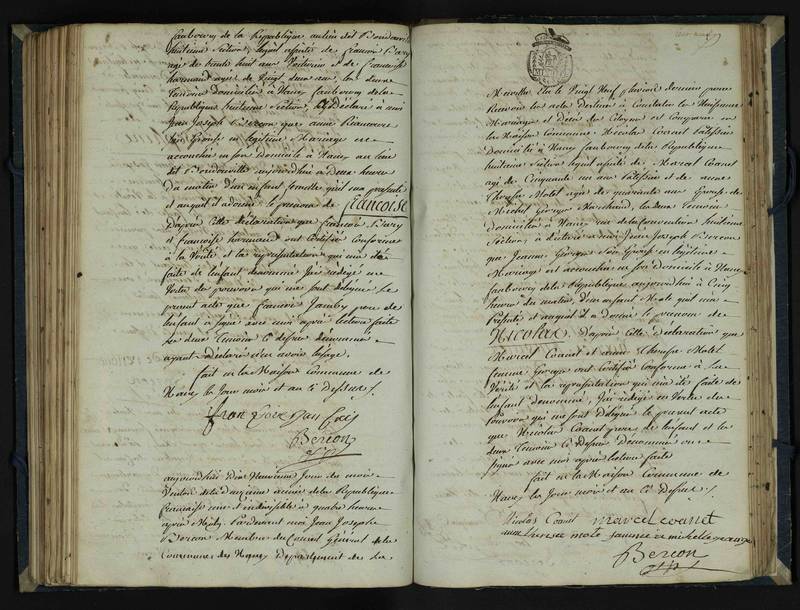 faubourg de la République au lieu dit Boudonville
huitième Section, agé de
agé de vingt huit ans Voiturier et de françoise
harmand agée de Vingt deux ans, les deux
témoins domiciliés à Nancy faubourg de la
République huitième Section, a déclaré à moi
Jean Joseph Bercon que anne
Son Epouse en légitime Mariage est
accouchée en son Domicile à Nancy au lieu
dit Boudonville aujourd'hui à Deux heures
du matin d'un enfant femelle qu'il m'a présenté
et auquel il a donné le prénom de françoise
D'après cette déclaration que françois
et françoise harmand ont Certifiée Conforme
à la Vérité et la représentation qui m'a été
faite de l'enfant dénommé j'ai rédigé en
Vertu des pouvoirs qui me sont délégués le
présent acte que françois Jamby père de
l'enfant a signé avec moi après lecture faite
les deux témoins ci dessus dénommés
ayant déclaré n'en avoir l'usage.
fait en la Maison Commune de
Nancy les Jour mois et an ci Dessus
Bercon
aujourd'hui Dix Neuvieme Jour du mois
Ventôse deuxieme année de la République
française une et indivisible à quatre heures
après Midy. Pardevant moi Jean Joseph
Bercon Membre du Conseil Général de la
Commune de Nancy Département de la
Meurthe Elu le Vingt Neuf pluviôse dernier pour
Recevoir les actes Destinés à Constater les Naissances
Mariages et Décès des Citoyens est comparu en
la Maison Commune Nicolas Coanet Patissier
Domicilié à Nancy faubourg de la République
huitieme Section lequel assisté de Marcel Coanet
agé de Cinquante un ans Patissier et de anne
Therese Molet agée de quarante ans Epouse de
Nicolas George Marchand, les deux témoins
domiciliés à Nancy rue de la Convention huitième
Section, a déclaré à moi Jean Joseph Bercon
que Jeanne George Son Epouse en légitime
Mariage est accouchée en son domicile à Nancy
faubourg de la République aujourd'hui à Cinq
heures du matin d'un enfant Male qu'il m'a
Présenté et auquel il a Donné le prénom de
Nicolas D'après cette déclaration que
Marcel Coanet et anne Therese Molet
femme George ont Certifiée Conforme à la
Vérité et la représentation qui m'a été faite de
l'enfant Dénommé, j'ai rédigé en Vertu des
Pouvoirs qui me sont délégués le présent acte
que Nicolas Coanet père de l'enfant et les
deux témoins ci Dessus Dénommés ont
Signé avec moi après lecture faite
fait en la Maison Commune de
Nancy les Jour mois et an ci Dessus
Nicolas Coanet marcel coanet
anne therese mole
Bercon